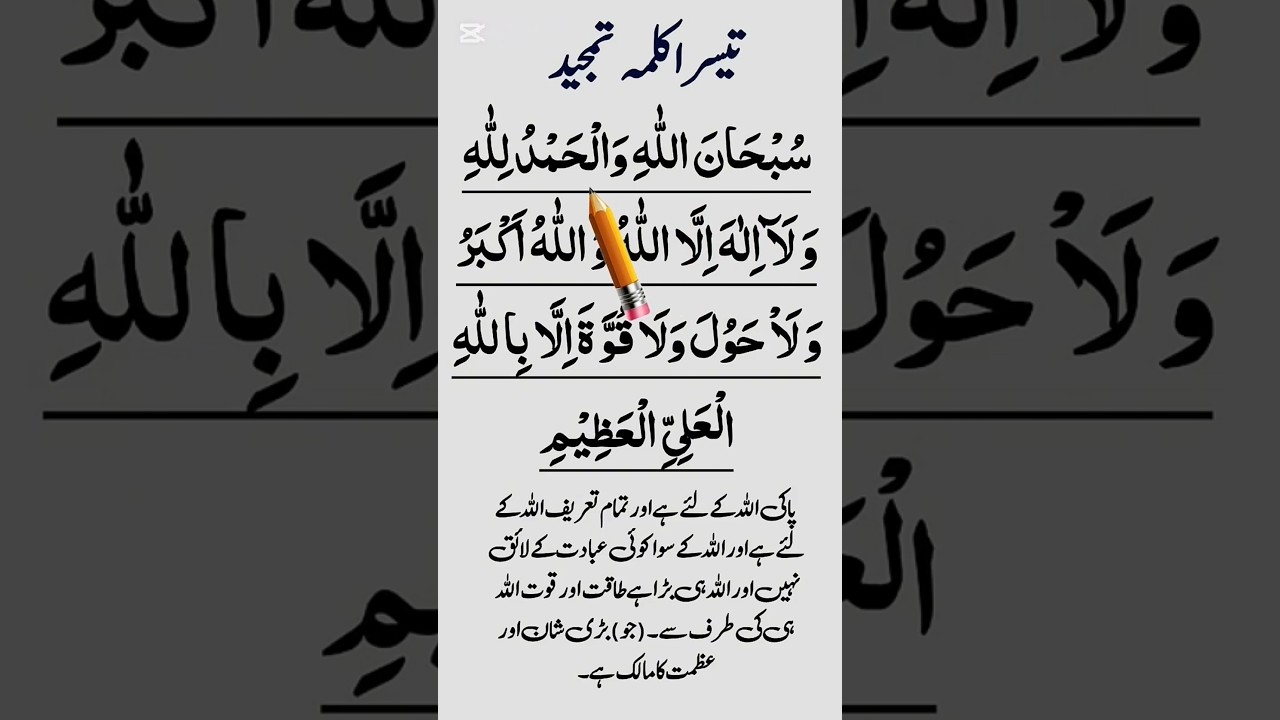 تیسرا کلمہ تمجید
سُبْحَانَ اللّٰهِ وَالْحَمْدُ لِلّٰهِ
وَلَآ اِلٰهَ اِلَّا اللّٰهُ وَ اللّٰهُ اَكْبَرُ
وَلَاْ حَوْلَ وَلَا قُوَّةَ اِلَّا بِاللّٰهِ
الْعَلِيِّ الْعَظِيْمِ
پاکی اللہ کے لئے ہے اور تمام تعریف اللہ کے
لئے ہے اور اللہ کے سوا کوئی عبادت کے لائق
نہیں اور اللہ ہی بڑا ہے طاقت اور قوت اللہ
ہی کی طرف سے۔ (جو) بڑی شان اور
عظمت کا مالک ہے۔